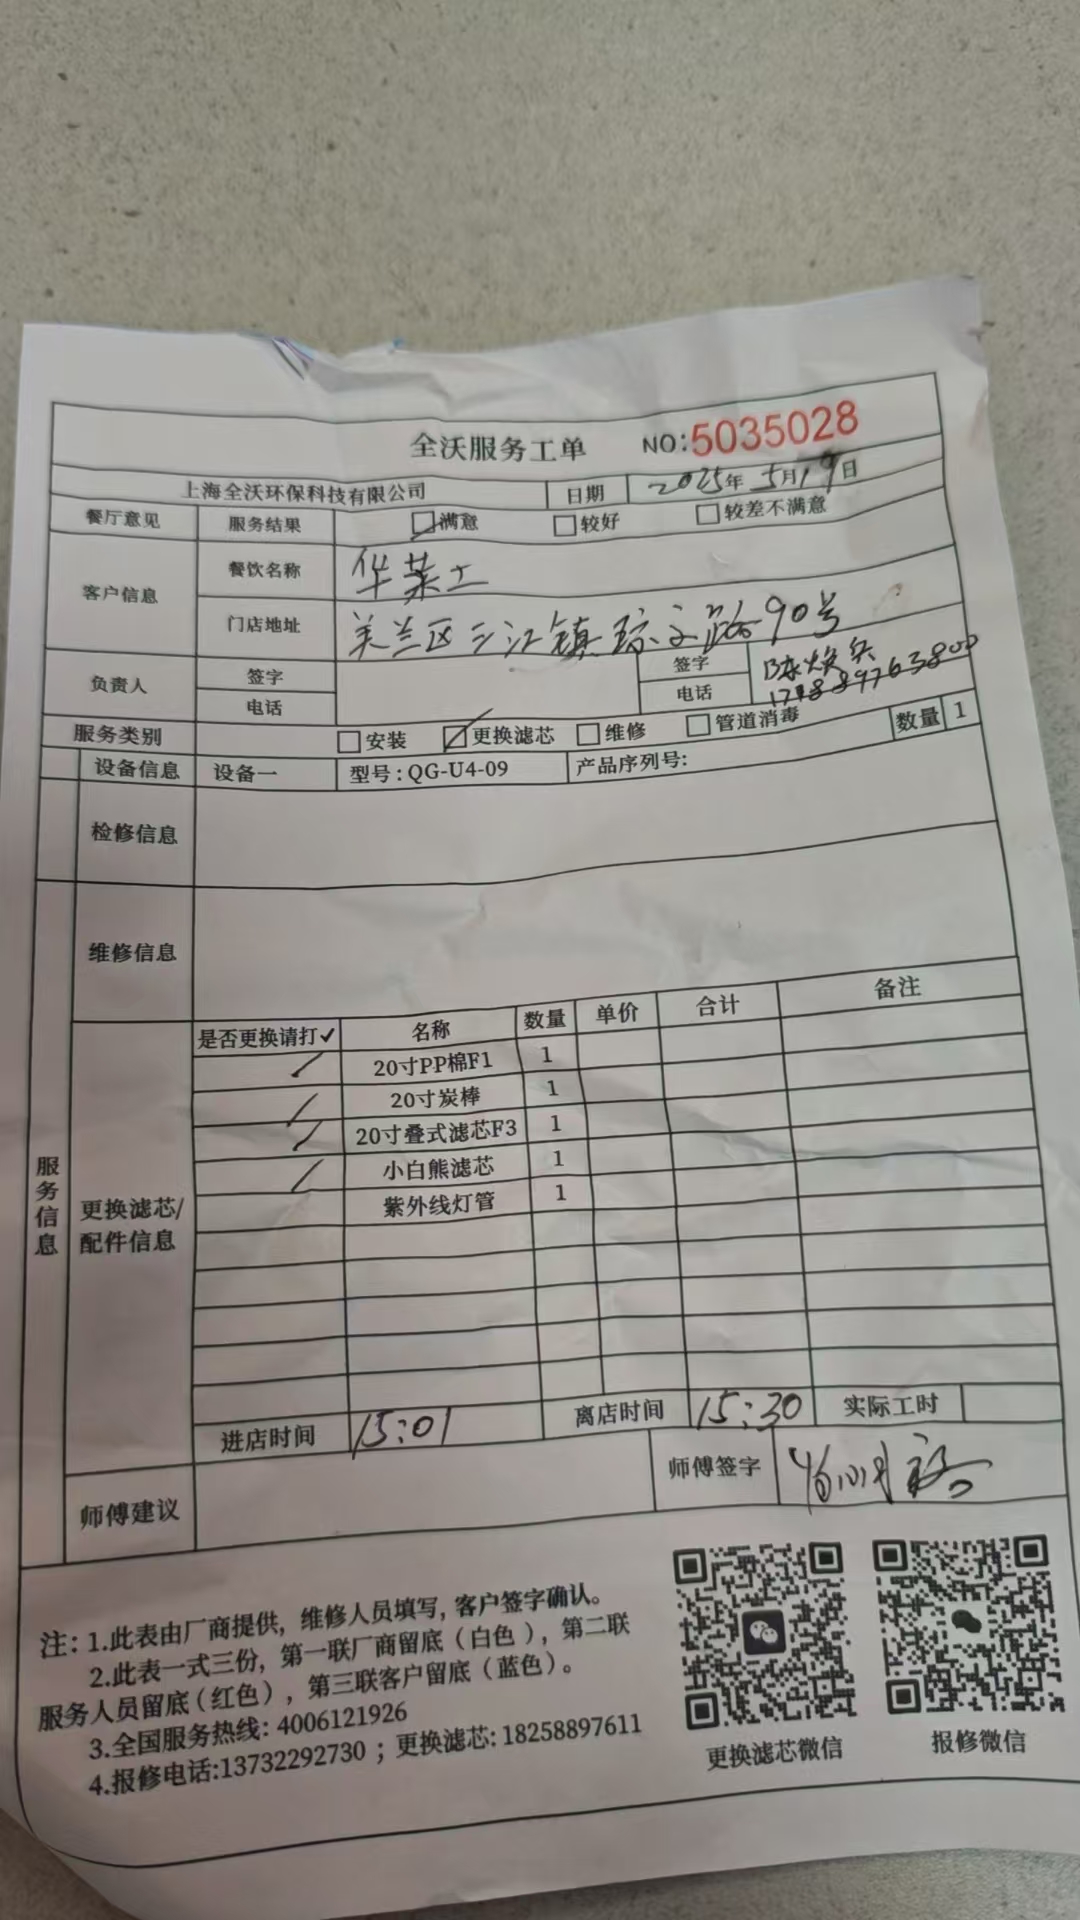 全沃服务工单 NO:5035028
上海全沃环保科技有限公司 日期 2025年5月19日
餐厅意见 服务结果 满意 较好 较差不满意
客户信息 餐饮名称 华莱士
门店地址 美兰区三江镇琼文路90号
负责人 签字 签字 陈焕
电话 电话
服务类别 安装 更换滤芯 维修 管道消毒 数量 1
设备信息 设备一 型号:QG-U4-09 产品序列号:
检修信息
维修信息
服务信息
更换滤芯/
配件信息
是否更换请打✓ 名称 数量 单价 合计 备注
20寸PP棉F1 1
20寸炭棒 1
20寸叠式滤芯F3 1
小白熊滤芯 1
紫外线灯管 1
进店时间 15:01 离店时间 15:30 实际工时
师傅建议 师傅签字
注: 1.此表由厂商提供, 维修人员填写, 客户签字确认。
2.此表一式三份, 第一联厂商留底(白色), 第二联
服务人员留底(红色), 第三联客户留底(蓝色)。
3.全国服务热线: 4006121926
4.报修电话:13732292730; 更换滤芯: 18258897611
更换滤芯微信 报修微信